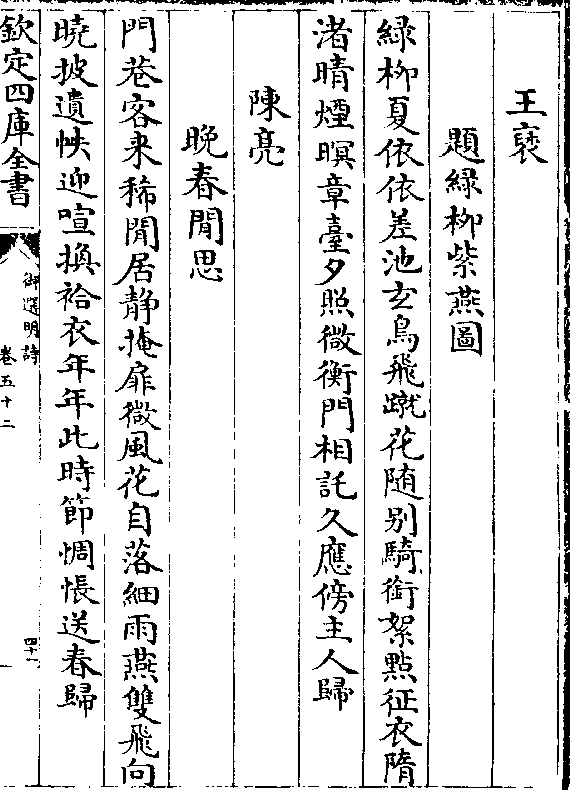 王褒
題綠柳紫燕圖
緑柳夏依依差池玄鳥飛蹴花随别騎銜絮㸃征衣隋
渚晴煙暝章臺夕照微衡門相託久應傍主人歸
陳亮
晚春閒思
門巷客来稀閒居静掩扉微風花自落細雨燕雙飛向
曉披遺帙迎喧換袷衣年年此時節惆悵送春歸
欽定四庫全書
御選明詩
卷五十二
四十一